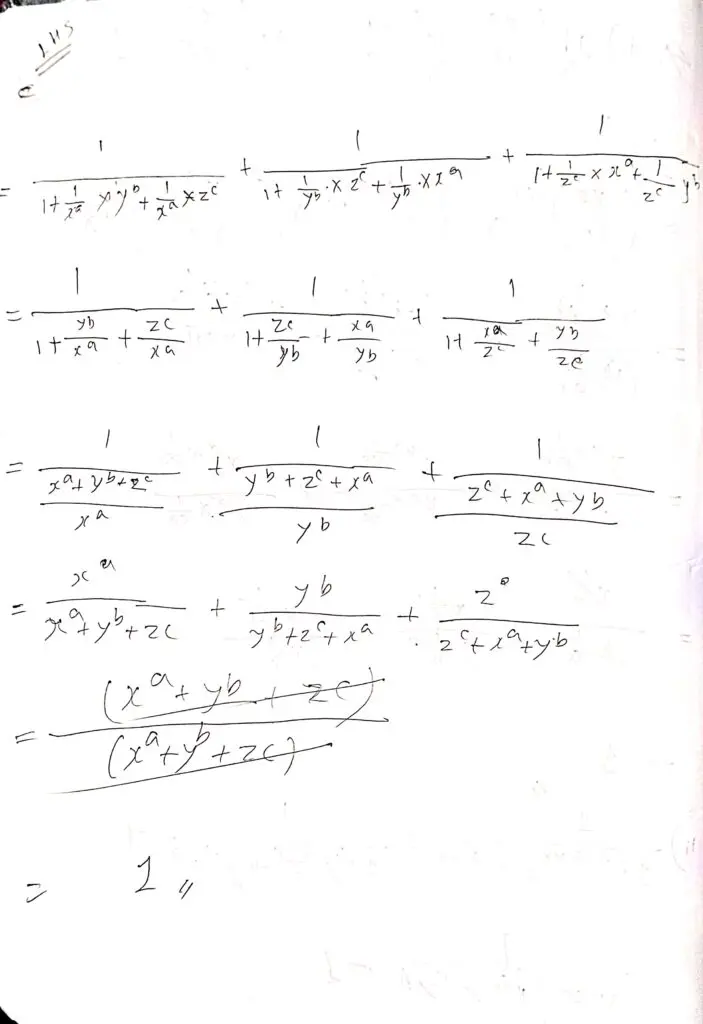 LHS
= 1/(1+1/x^a × y^b + 1/x^a × z^c) + 1/(1+ 1/y^b · × z^c + 1/y^b · × x^a) + 1/(1+ 1/z^c × x^a + 1/z^c y^b)
= 1/(1+ y^b/x^a + z^c/x^a) + 1/(1+ z^c/y^b + x^a/y^b) + 1/(1+ x^a/z^c + y^b/z^c)
= 1/((x^a+y^b+z^c)/x^a) + 1/((y^b+z^c+x^a)/y^b) + 1/((z^c+x^a+y^b)/z^c)
= x^a/(x^a+y^b+z^c) + y^b/(y^b+z^c+x^a) + z^c/(z^c+x^a+y^b)
= (x^a+y^b+z^c)/(x^a+y^b+z^c)
= 1 //